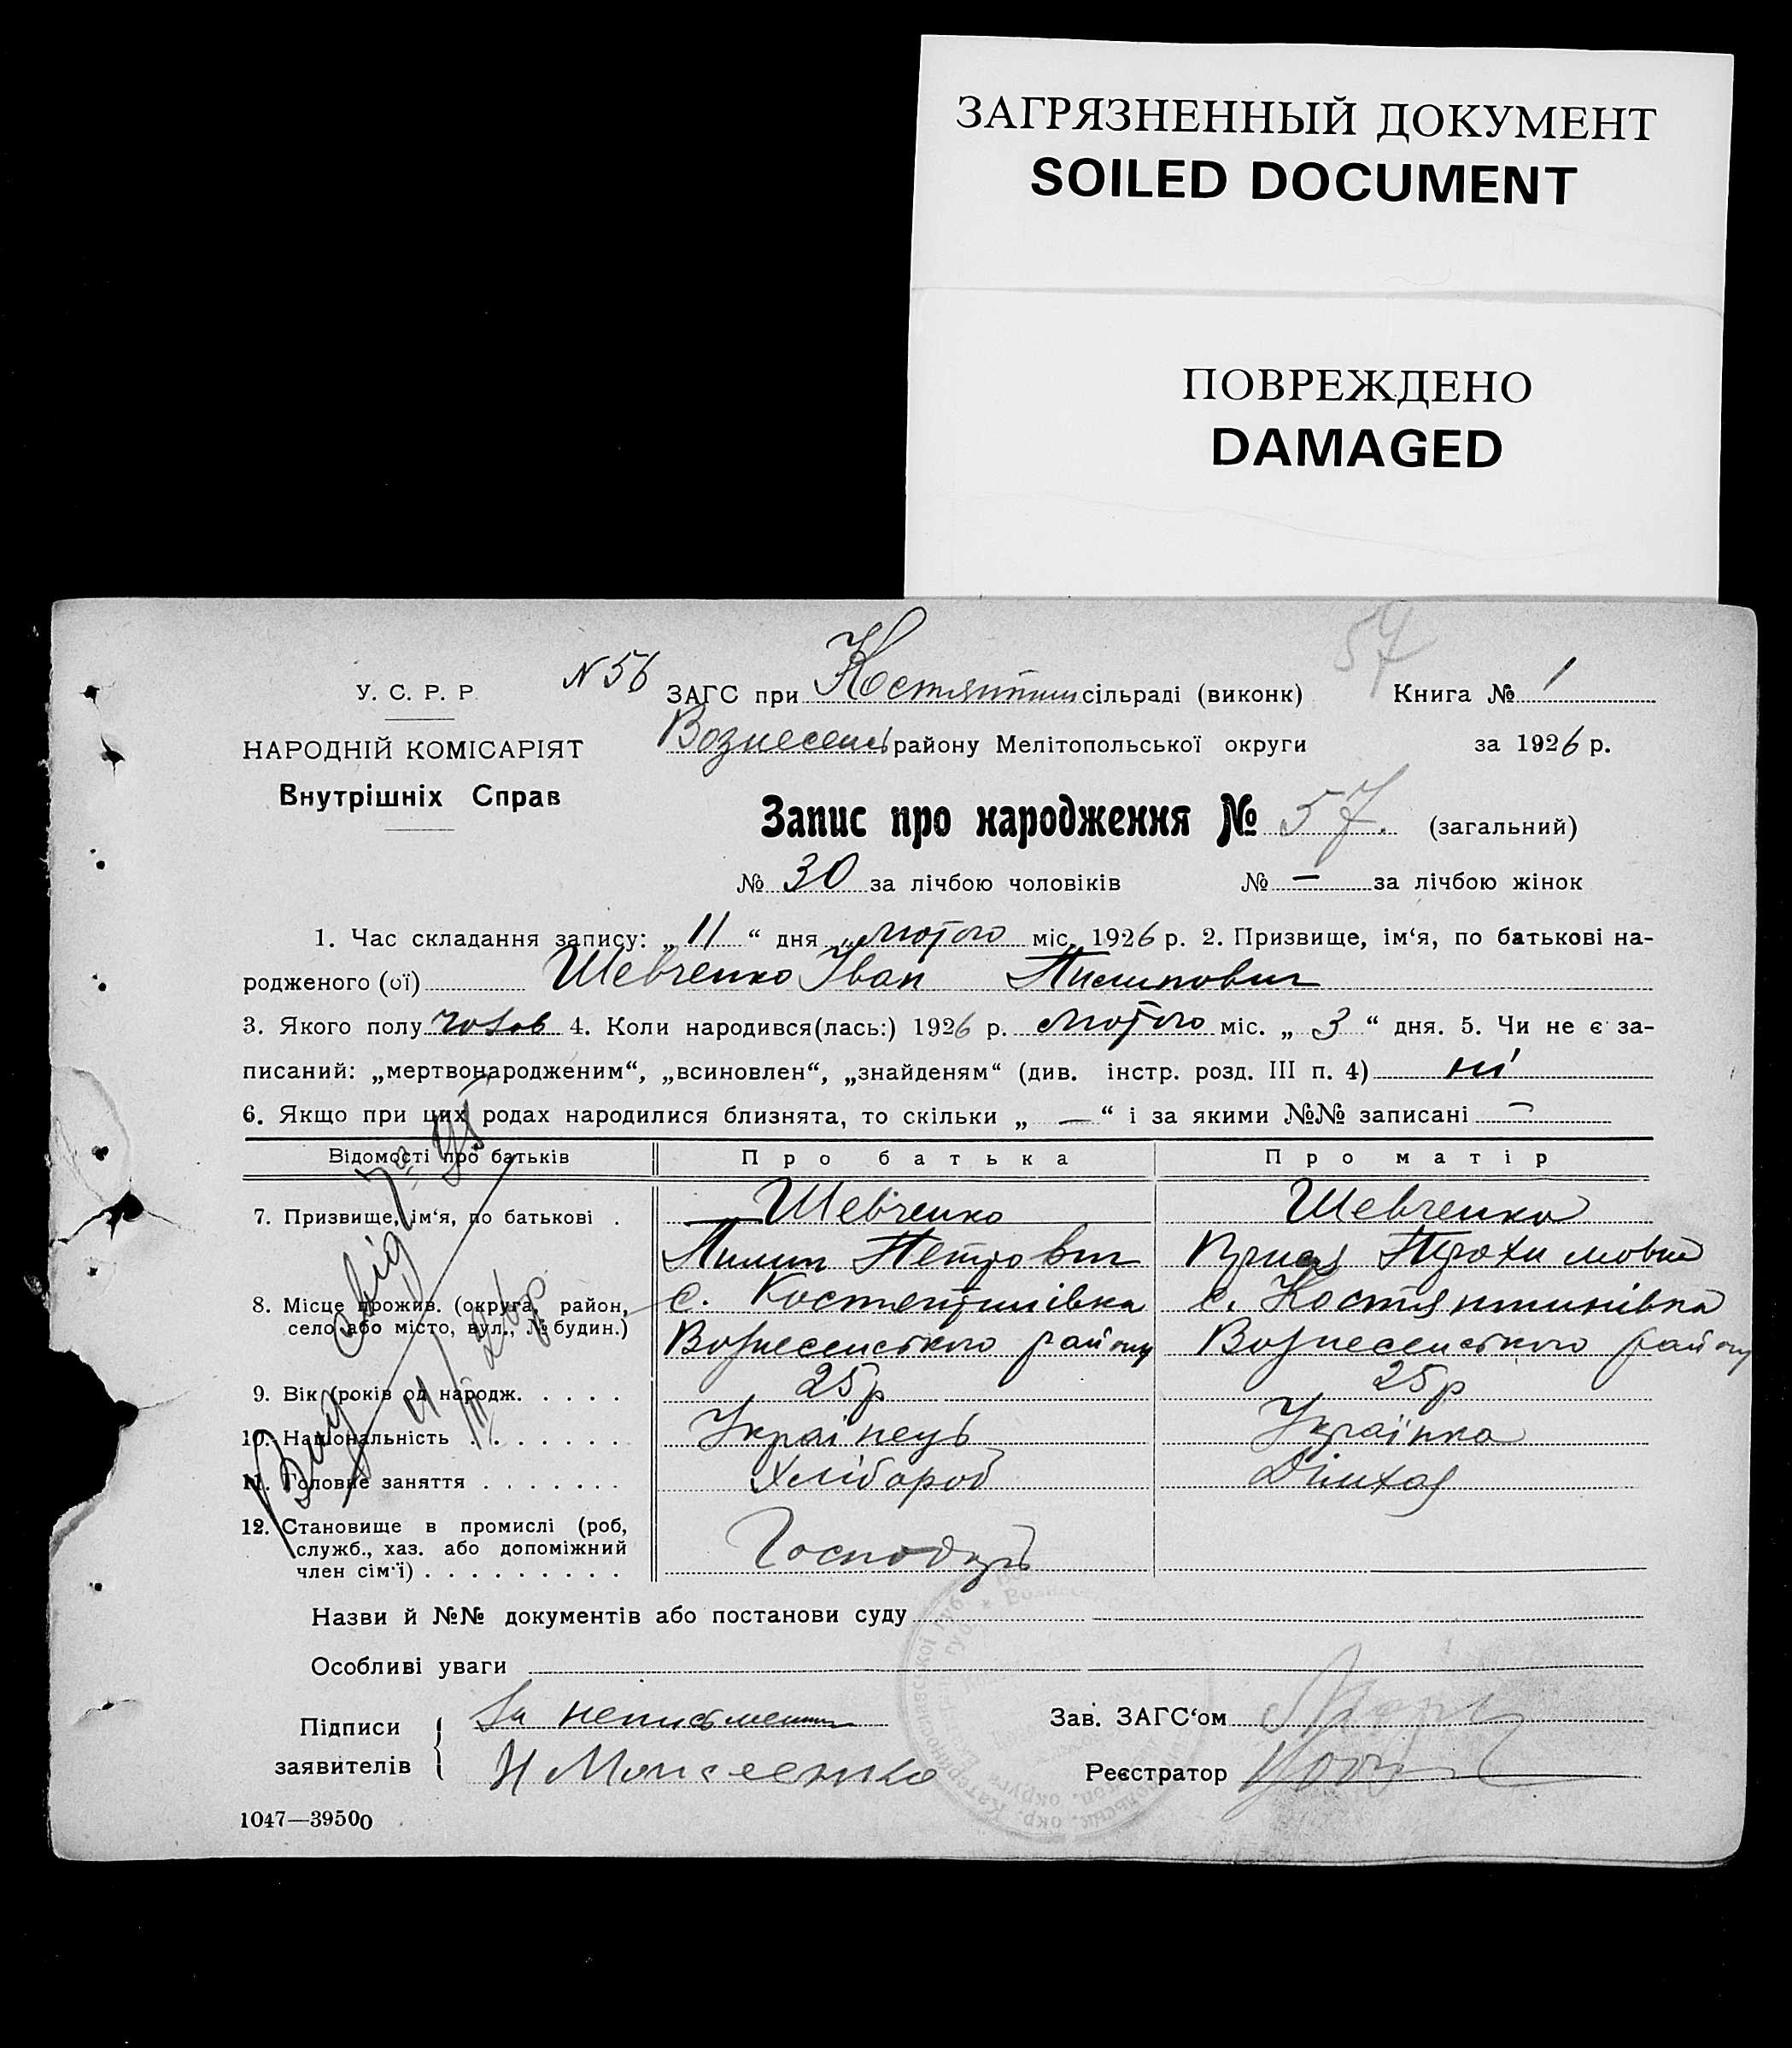 ЗАГРЯЗНЕННЫЙ ДОКУМЕНТ
SOILED DOCUMENT
ПОВРЕЖДЕНО
DAMAGED
57
У. С. Р. Р.
N 56 ЗАГС при сільраді (виконк) Книга № 1
НАРОДНІЙ КОМІСАРІЯТ
Вознесенс району Мелітопольської округи за 1926 р.
Внутрішніх Справ
Запис про народження № 57. (загальний)
№ 30 за лічбою чоловіків № — за лічбою жінок
1. Час складання запису: „ 11 “ дня „ лютого міс. 1926 р. 2. Призвище, ім‘я, по батькові на-
родженого (ої) Шевченко Іван Пилипович
3. Якого полу чолов 4. Коли народився(лась:) 1926 р. лютого міс. „ 3 “ дня. 5. Чи не є за-
писаний: „мертвонародженим“, „всиновлен“, „знайденям“ (див. інстр. розд. III п. 4) ні
6. Якщо при цих родах народилися близнята, то скільки „ — “ і за якими №№ записані —
Відомості про батьків Про батька Про матір
7. Призвище, ім‘я, по батькові . Шевченко Шевченко
Пилип Петрович
8. Місце прожив. (округа, район, с. Костентинівка с. Костянтинівка
село або місто, вул., № будин.) Вознесенського району Вознесенського району
9. Вік (років од народж. . . . . 25 р 25 р
10. Національність . . . . . . . Українець Українка
11. Головне заняття . . . . . . . Хлібороб
12. Становище в промислі (роб, Господарь
служб., хаз. або допоміжний
член сім‘ї) . . . . . . . . .
Назви й №№ документів або постанови суду
Особливі уваги
Підписи За неписьменн Зав. ЗАГС‘ом
заявителів Н Моисеенко Реєстратор
1047—39500